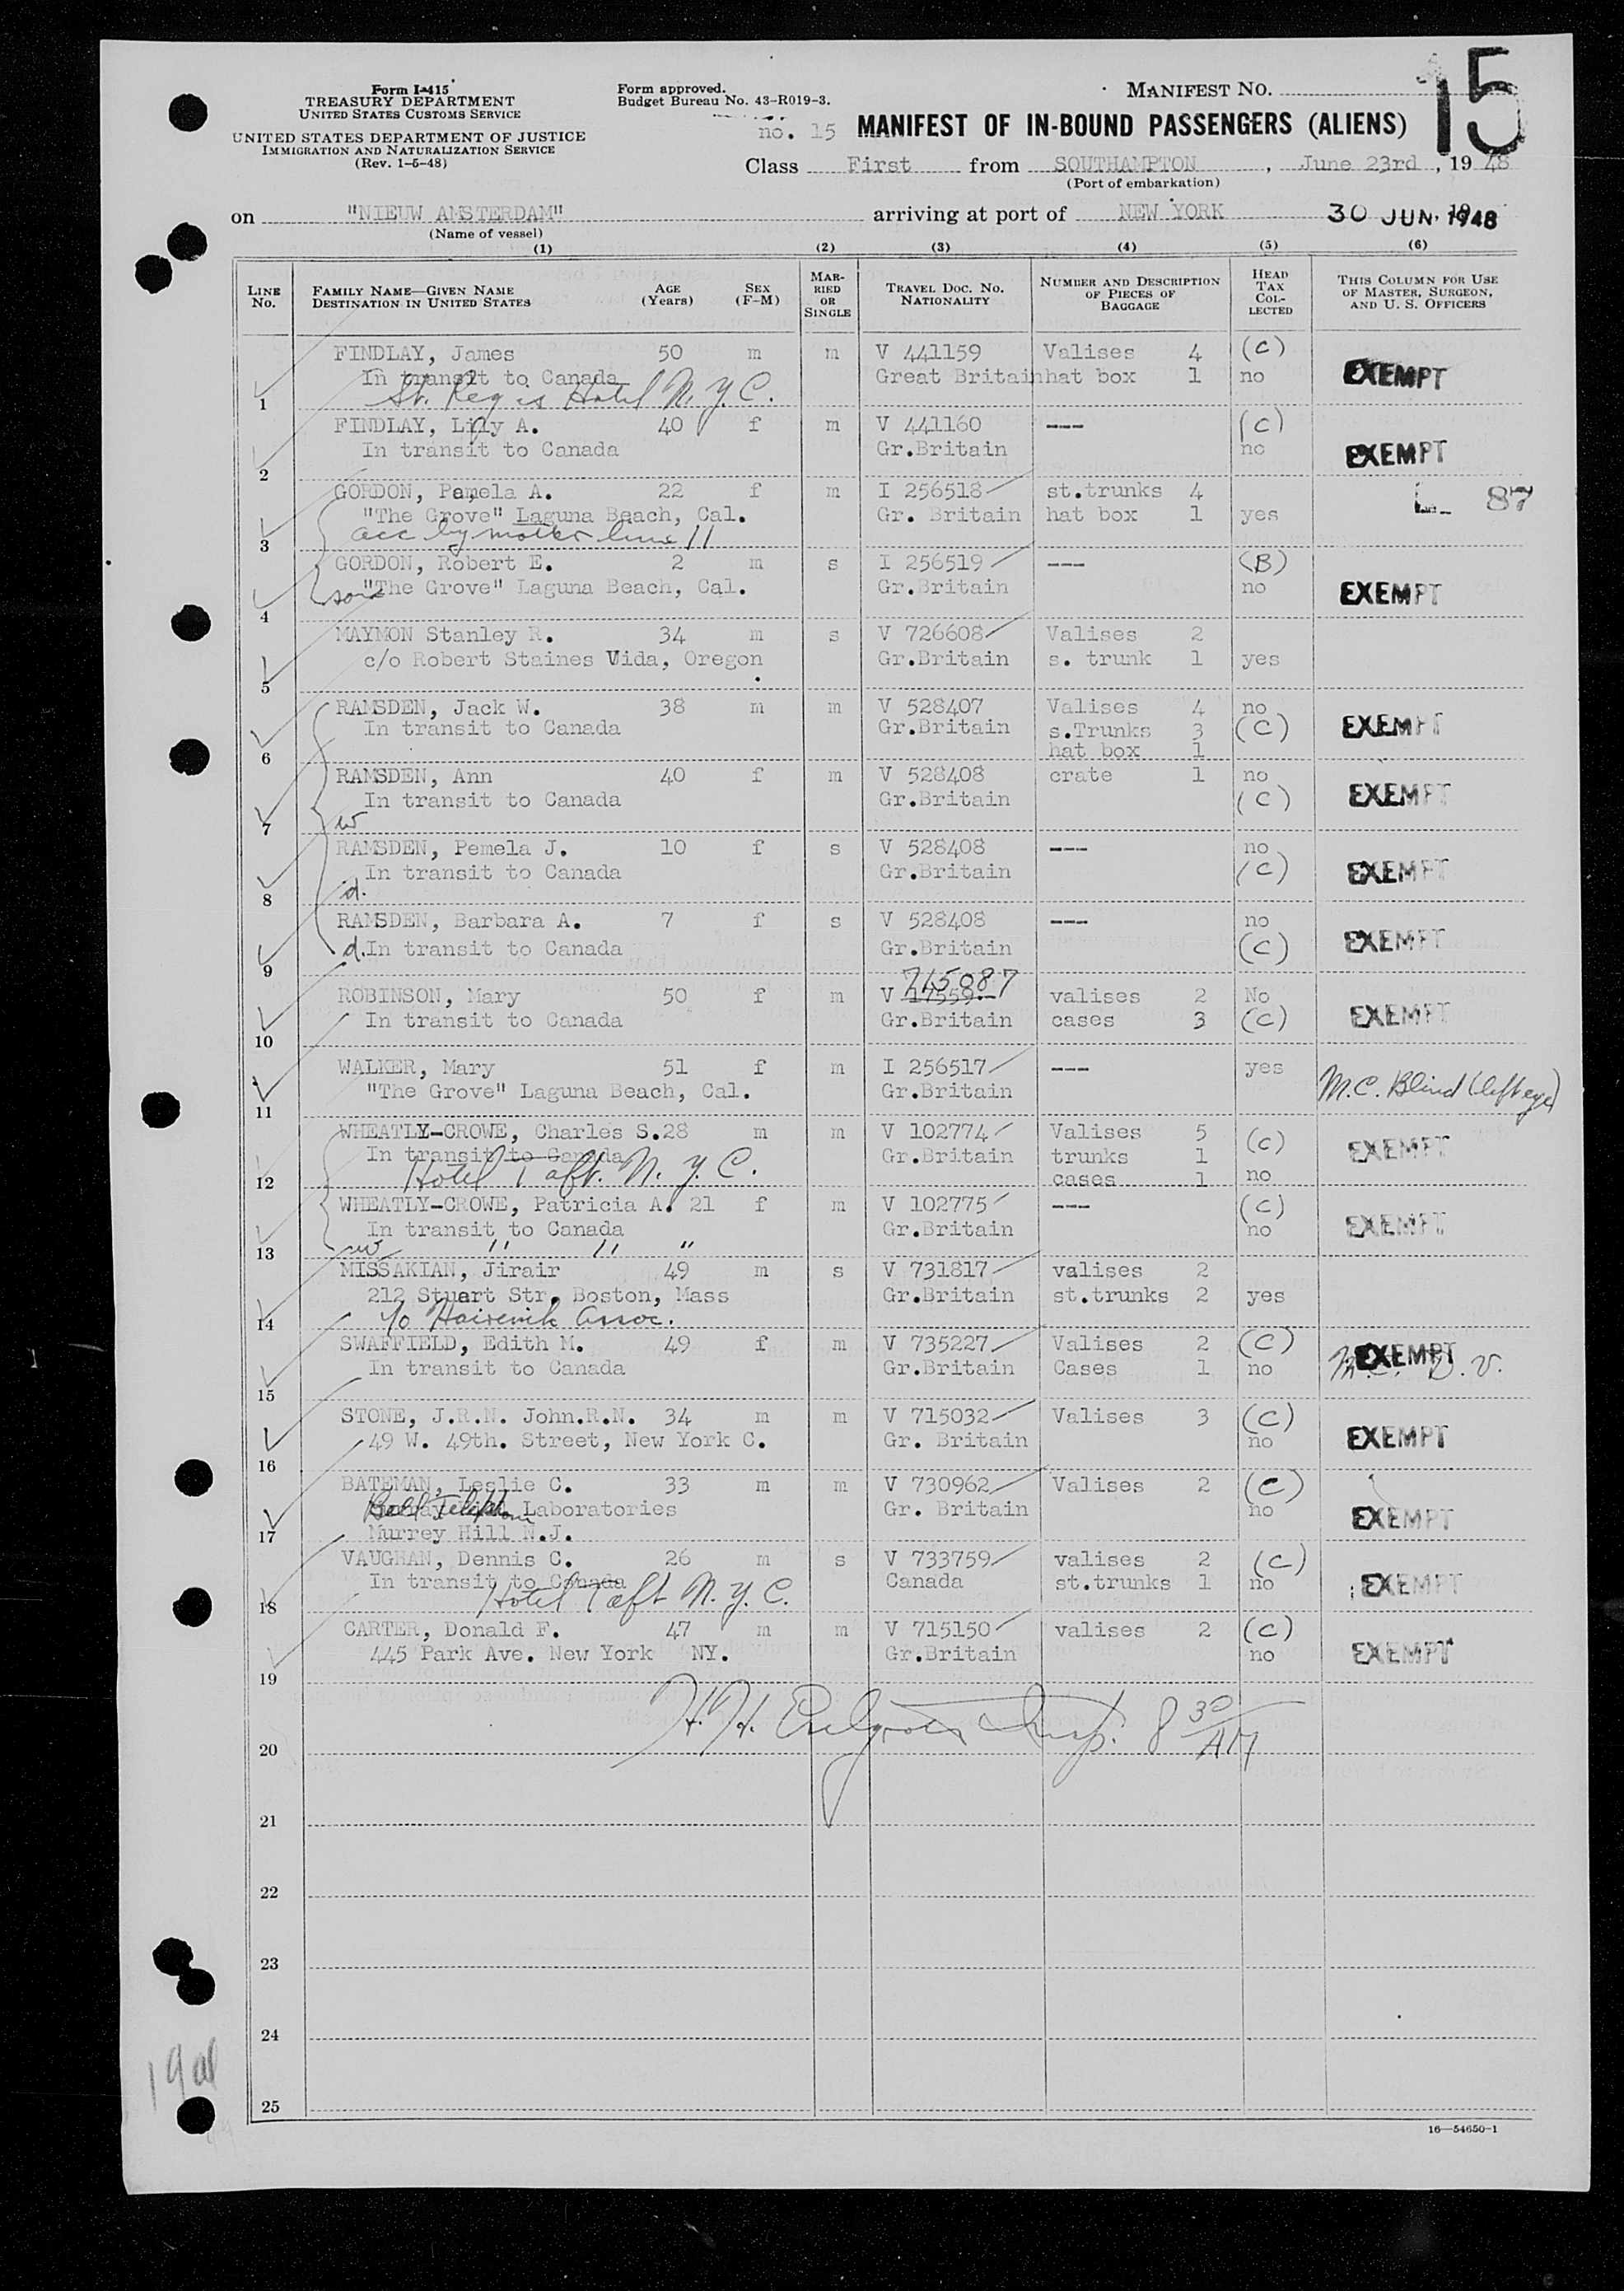 Form I-415
TREASURY DEPARTMENT
UNITED STATES CUSTOMS SERVICE
UNITED STATES DEPARTMENT OF JUSTICE
IMMIGRATION AND NATURALIZATION SERVICE
(Rev. 1-5-48)
Form approved.
Budget Bureau No. 43-R019-3.
MANIFEST NO. 15
no. 15 MANIFEST OF IN-BOUND PASSENGERS (ALIENS)
Class First from SOUTHAMPTON, June 23rd, 1948
(Port of embarkation)
on "NIEUW AMSTERDAM" arriving at port of NEW YORK 30 JUN. 1948
(Name of vessel)
(1) (2) (3) (4) (5) (6)
LINE No. FAMILY NAME—GIVEN NAME DESTINATION IN UNITED STATES AGE (Years) SEX (F-M) MARRIED OR SINGLE TRAVEL DOC. NO. NATIONALITY NUMBER AND DESCRIPTION OF PIECES OF BAGGAGE HEAD TAX COLLECTED THIS COLUMN FOR USE OF MASTER, SURGEON, AND U. S. OFFICERS
FINDLAY, James 50 m m V 441159 Valises 4 (C)
In transit to Canada Great Britain hat box 1 no EXEMPT
1 St. Regis Hotel N.Y.C.
FINDLAY, Lily A. 40 f m V 441160 --- (C)
In transit to Canada Gr.Britain no EXEMPT
2
GORDON, Pamela A. 22 f m I 256518 st.trunks 4 87
"The Grove" Laguna Beach, Cal. Gr. Britain hat box 1 yes
3 acc by mother line 11
GORDON, Robert E. 2 m s I 256519 --- (B)
son "The Grove" Laguna Beach, Cal. Gr.Britain no EXEMPT
4
MAYMON Stanley R. 34 m s V 726608 Valises 2
c/o Robert Staines Vida, Oregon Gr.Britain s. trunk 1 yes
5
RAMSDEN, Jack W. 38 m m V 528407 Valises 4 no
In transit to Canada Gr.Britain s.Trunks 3 (C) EXEMPT
6 hat box 1
RAMSDEN, Ann 40 f m V 528408 crate 1 no
In transit to Canada Gr.Britain (C) EXEMPT
7 w
RAMSDEN, Pemela J. 10 f s V 528408 --- no
In transit to Canada Gr.Britain (C) EXEMPT
8 d.
RAMSDEN, Barbara A. 7 f s V 528408 --- no
d. In transit to Canada Gr.Britain (C) EXEMPT
9
715087
ROBINSON, Mary 50 f m V 17559 valises 2 No
In transit to Canada Gr.Britain cases 3 (C) EXEMPT
10
WALKER, Mary 51 f m I 256517 --- yes
"The Grove" Laguna Beach, Cal. Gr.Britain M.C. Blind (left eye)
11
WHEATLY-CROWE, Charles S. 28 m m V 102774 Valises 5 (C)
In transit to Canada Gr.Britain trunks 1 EXEMPT
12 Hotel Taft. N.Y.C. cases 1 no
WHEATLY-CROWE, Patricia A. 21 f m V 102775 --- (C)
In transit to Canada Gr.Britain no EXEMPT
13 w " " "
MISSAKIAN, Jirair 49 m s V 731817 valises 2
212 Stuart Str. Boston, Mass Gr.Britain st.trunks 2 yes
14 c/o Hairenik Assoc.
SWAFFIELD, Edith M. 49 f m V 735227 Valises 2 (C) EXEMPT
In transit to Canada Gr.Britain Cases 1 no M.C. D.V.
15
STONE, J.R.N. John.R.N. 34 m m V 715032 Valises 3 (C)
49 W. 49th. Street, New York C. Gr. Britain no EXEMPT
16
BATEMAN, Leslie C. 33 m m V 730962 Valises 2 (C)
Bell Telephone Laboratories Gr. Britain no EXEMPT
17 Murrey Hill N.J.
VAUGHAN, Dennis C. 26 m s V 733759 valises 2 (C)
In transit to Canada Canada st.trunks 1 no EXEMPT
18 Hotel Taft N.Y.C.
CARTER, Donald F. 47 m m V 715150 valises 2 (C)
445 Park Ave. New York NY. Gr.Britain no EXEMPT
19
H.H. Insp. 8 30 AM
20
21
22
23
24
25
16—54650-1